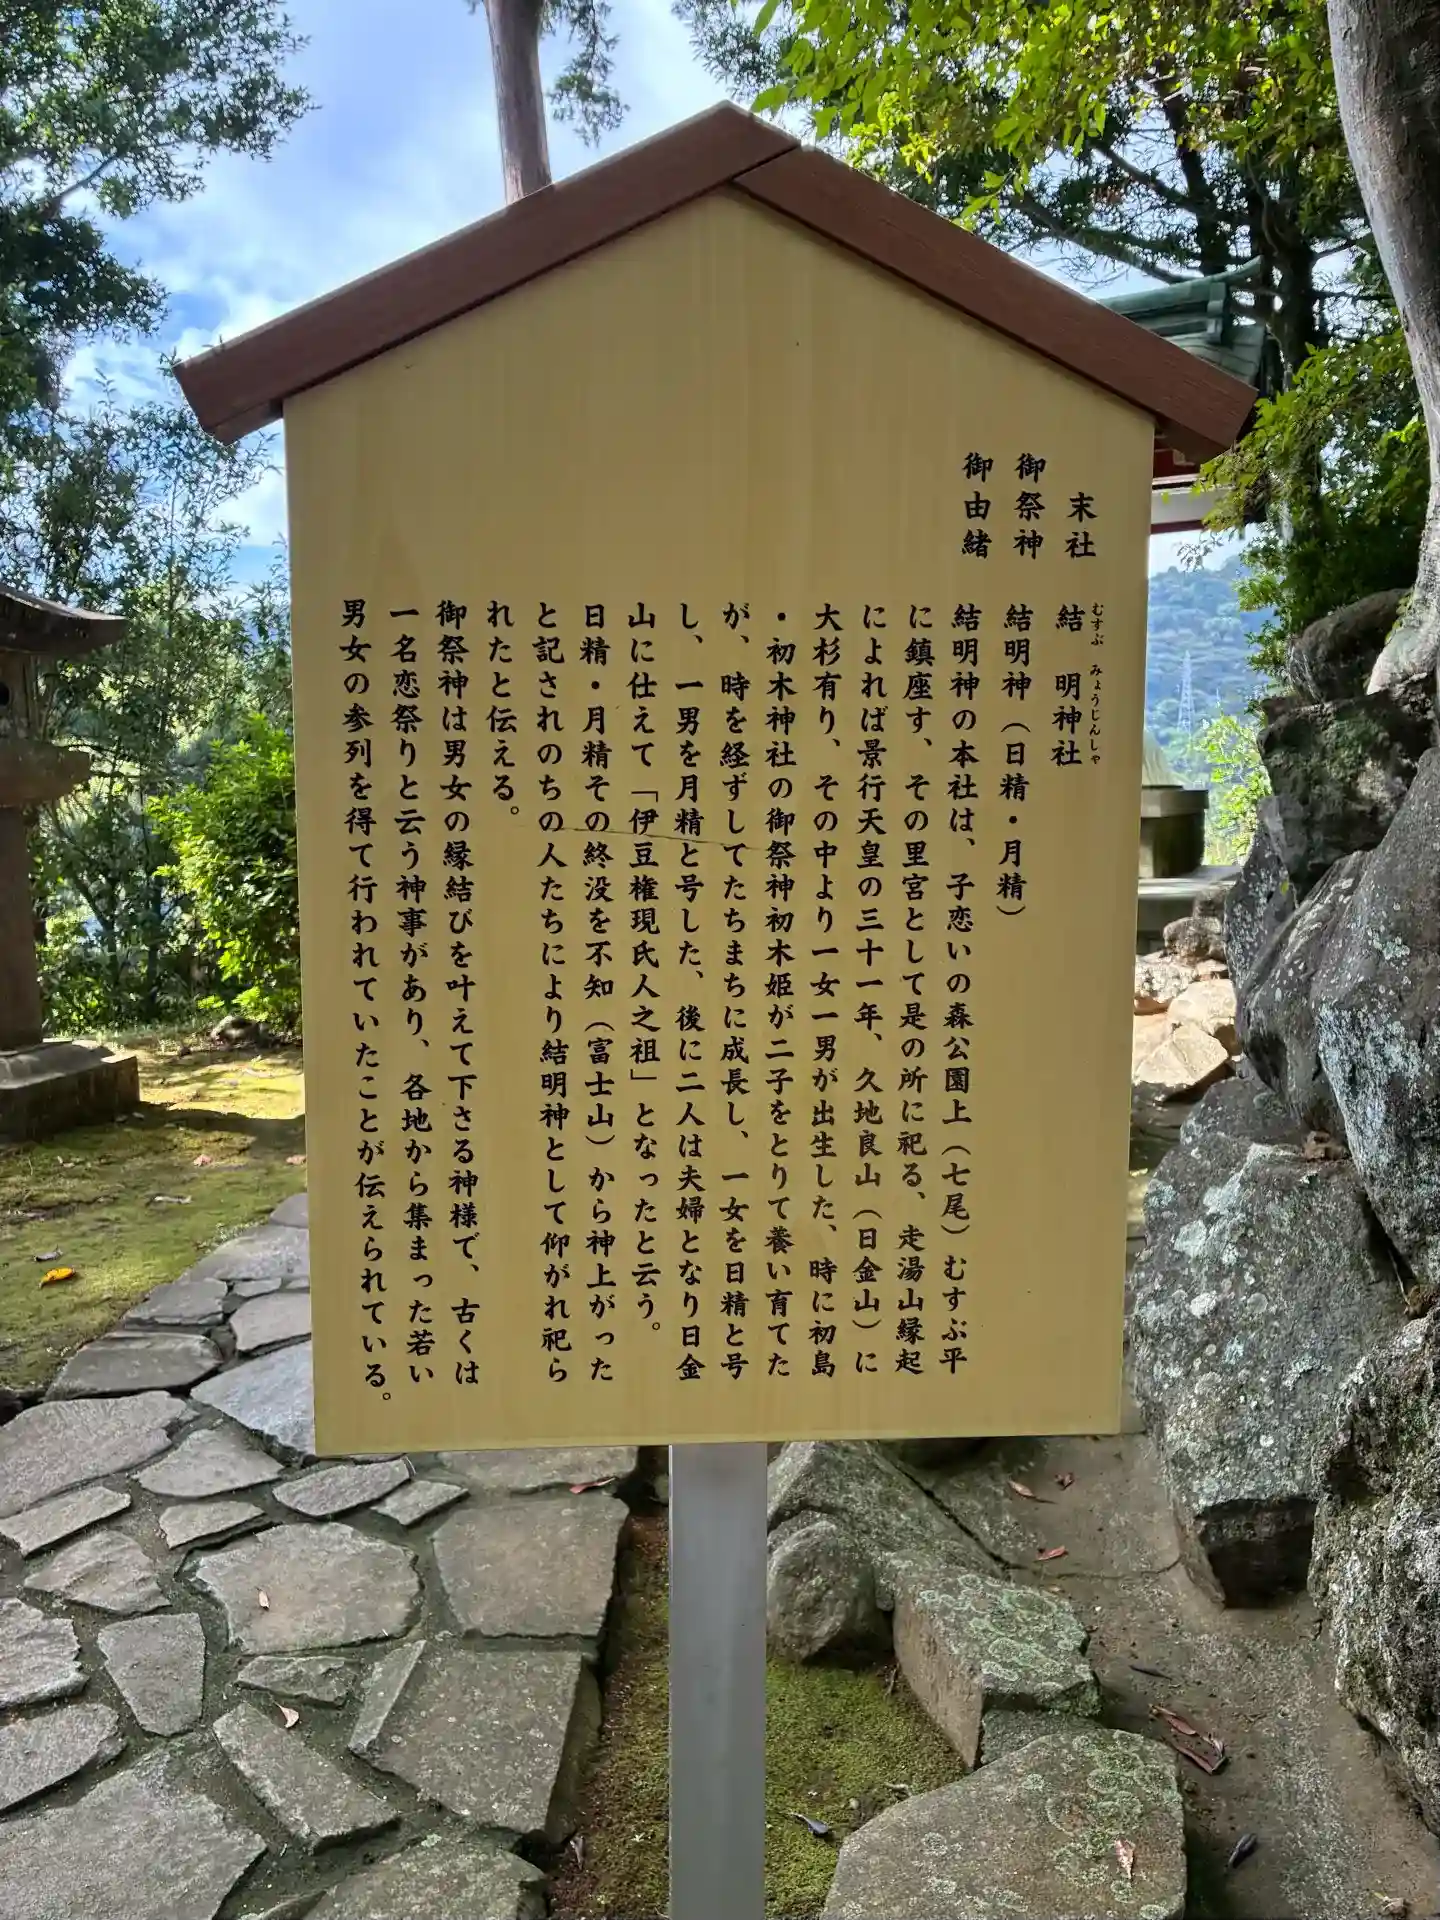 末社 結明神社
むすぶ みょうじんしゃ
御祭神 結明神（日精・月精）
御由緒 結明神の本社は、子恋いの森公園上（七尾）むすぶ平
に鎮座す、その里宮として是の所に祀る、走湯山縁起
によれば景行天皇の三十一年、久地良山（日金山）に
大杉有り、その中より一女一男が出生した、時に初島
・初木神社の御祭神初木姫が二子をとりて養い育てた
が、時を経ずしてたちまちに成長し、一女を日精と号
し、一男を月精と号した、後に二人は夫婦となり日金
山に仕えて「伊豆権現氏人之祖」となったと云う。
日精・月精その終没を不知（富士山）から神上がった
と記されのちの人たちにより結明神として仰がれ祀ら
れたと伝える。
御祭神は男女の縁結びを叶えて下さる神様で、古くは
一名恋祭りと云う神事があり、各地から集まった若い
男女の参列を得て行われていたことが伝えられている。